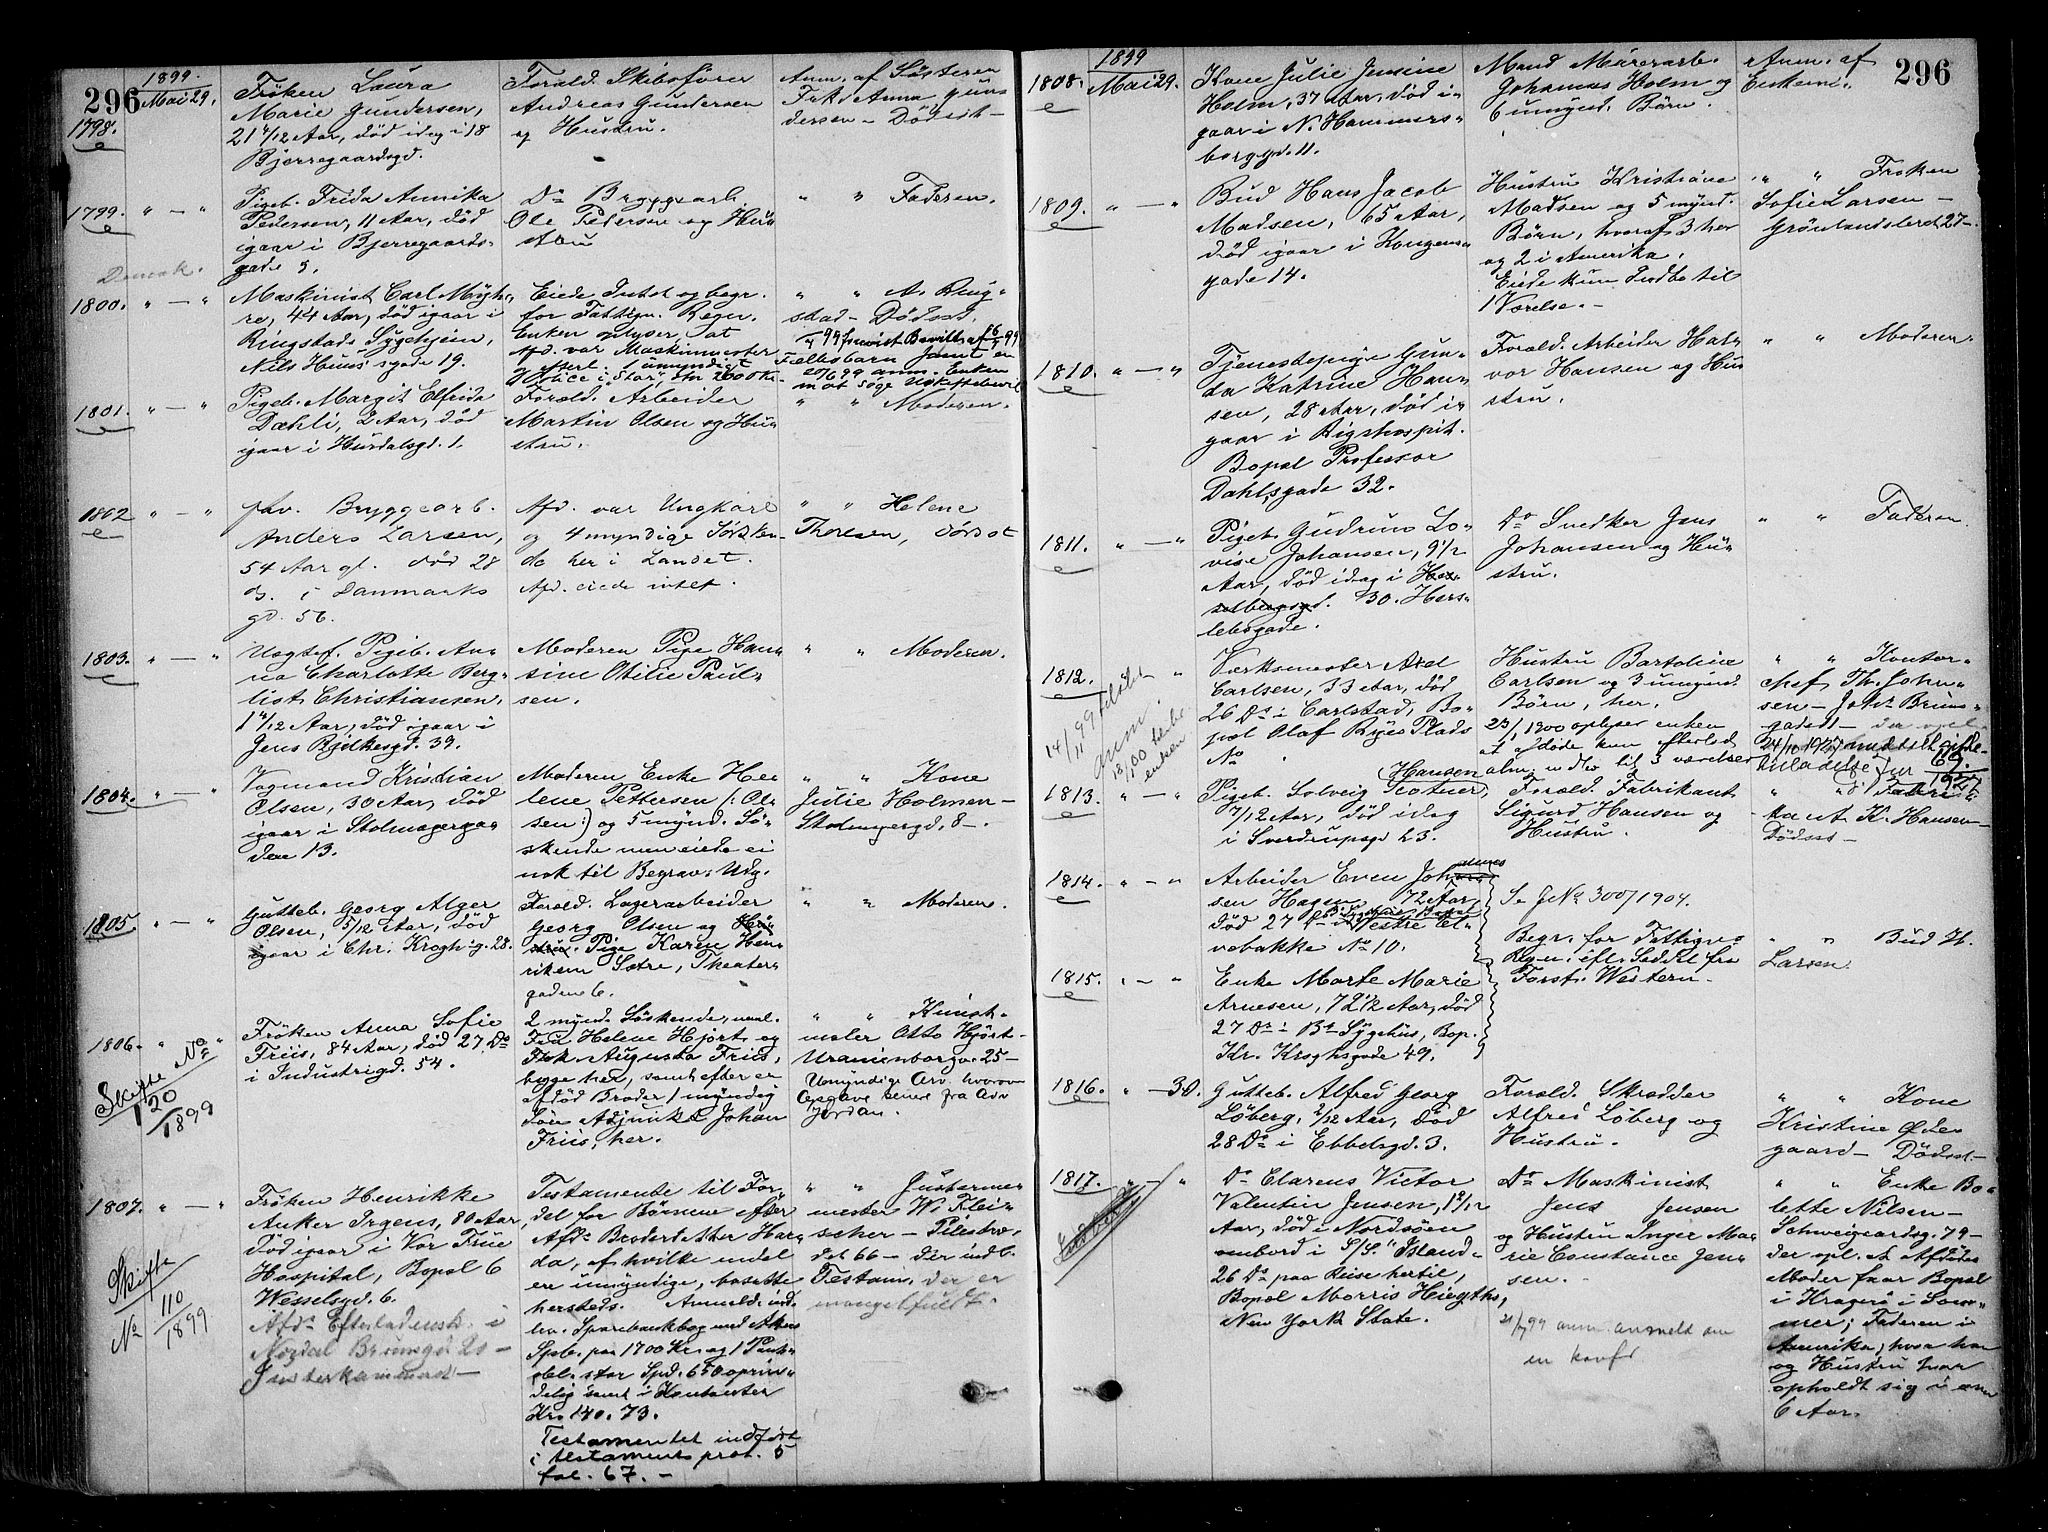 296
1899.
Mai 29.
1798.
e
Frøken Laura
Marie Gundersen,
21 4/12 Aar, død idag i 18
Bjerregaardsgd.
Forald. Skibsfører
Andreas Gundersen
og Hustru.
Anm. af Søsteren
Frk. Anna Gun-
dersen - Dødsst -
1799.
e
" — "
Pigeb. Frida Annika
Pedersen, 11 Aar, død
igaar i Bjerregaards-
gade 5.
Do Bryggearb.
Ole Pedersen og Hu-
stru
" " Faderen.
1800.
" — "
Maskinist Carl Myh-
re, 44 Aar, død igaar i
Ringstads Sygehjem,
Nils Huus' gade 19.
Eiede Intet og begr.
for Fattigv. Regn.
Enken oplyser, at
Afd. var Maskinmester
" " A. Ring-
stad - Dødsst.
Fellesbarn samt en
20/6 99 anm. Enken
1801.
e
" — "
Pigeb. Margit Elfrida
Dæhli, 2 Aar, død
igaar i Hurdalsgd. 1.
Forald. Arbeider
Martin Olsen og Hu-
stru.
" " Moderen.
1802
e
" — "
fhv. Bryggearb.
Anders Larsen,
54 Aar gl. død 28
ds. i Danmarks
gd. 56.
Afd. var Ungkarl
og 4 myndige Søsken-
de her i Landet.
Afd. eiede intet.
" " Helene
Thoresen, Dødsst
1803.
e
" — "
Uægtef. Pigeb. An-
na Charlotte Berg-
liot Christiansen,
1 4/12 Aar, død igaar i
Jens Bjelkesgd. 39.
Moderen Pige Han-
sine Otilie Paul-
sen.
" " Moderen.
1804.
e
" — "
Vognmand Kristian
Olsen, 30 Aar, død
igaar i Stolmagerga-
den 13.
Moderen Enke He-
lene Pettersen (: Ol-
sen :) og 5 mynd. Sø-
skende men eiede ei
nok til Begrav. Udg.
" " Kone
Julie Holmen -
Stolmgergd. 8 -.
1805.
" — "
Gutteb. Georg Alger
Olsen, 5/12 Aar, død
igaar i Chr. Krogh'g. 28.
Forald. Lagerarbeider
Georg Olsen og Hu-
stru. Pige Karen Hen-
rikem Sætre, Theater-
gadene 6.
" " Moderen.
1806.
" "
Skifte No
120
1899
Frøken Anna Sofie
Friis, 84 Aar, død 27 Do
i Industrigd. 54.
2 mynd. Søskende, navnl.
Fru Helene Hjort og
Frk. Augusta Friis,
begge her, samt efter en
afdød Broder 1 myndig
Søn Adjunkt Johan
Friis, her.
" " Kunst-
maler Otto Hjort -
Uranienborgv. 25 -
Umyndige Arv. hvorom
Opgave senere fra Adv
Jordan.
1807.
" — "
Skifte
No 110
1899
Frøken Henrikke
Anker Irgens, 80 Aar,
død igaar i Vor Frue
Hospital, Bopæl 6
Wesselsgd. 6.
Testamente til For-
del for Børnene efter
Afd. Broderdatter Har-
da, af hvilke endel
ere umyndige, bosatte
hersteds. Anmeld. ind-
lev. Sparebankbog med Akers
Spb. paa 1700 Kr. og 1 Pant-
obl. stor Spd. 650 oprin-
delig samt i Kontanter
Kr. 140.73.
Testamentet indført
i testaments prot. 5
fol. 67. -
" " Justerme-
mester W. Flei-
scher - Pilestræ-
det 66 - Der indl.
Testam. der er
mangelfuldt.
1899
Mai 29.
296
1808.
e
Kone Julie Jensine
Holm, 37 Aar, død i-
gaar i N. Hammers-
borggd. 11.
Mand Murerarb.
Johannes Holm og
6 umynd. Børn.
Anm. af
Enkem.
1809.
e
" — "
Bud Hans Jacob
Madsen, 65 Aar,
død igaar i Kongens-
gade 14.
Hustru Kristiane
Madsen og 5 mynd.
Børn, hvoraf 3 her
og 2 i Amerika.
Eiede kun Indbo til
1 Værelse. -
" " Frøken
Sofie Larsen -
Grønlandsleret 27 -
1810.
e
" — "
Tjenestepige Gun-
da Katrine Han-
sen, 28 Aar, død i-
gaar i Rigshospit.
Bopæl Professor
Dahlsgade 32.
Forald. Arbeider Hal-
vor Hansen og Hu-
stru.
" " Moderen.
1811.
e
" — "
Pigeb. Gudrun Lo-
vise Johansen, 9 1/2
Aar, død idag i Has-
selbergsgd. 30. Hers-
lebsgade.
Do Snedker Jens
Johansen og Hu-
stru.
" " Faderen.
1812.
Værksmester Axel
Carlsen, 33 Aar, død
26 Do i Carlstad, Bo-
pæl Olaf Ryes Plads
No
Hustru Bartoline
Carlsen og 3 umynd.
Børn, her.
23/1 1900 oplyser enken
at afdøde kun efterlod
alm. indbo til 3 værelser
" " Kontor-
chef Th. John-
sen - Joh. Bruns-
gadest -
1813.
e
" — "
Pigeb. Solveig Rotnes Hansen,
7/12 Aar, død idag
i Sverdrupsgd 23.
Forald. Fabrikant
Sigurd Hansen og
Hustru.
A. K. Hansen -
Dødsst -
1814.
e
" — "
Arbeider Even Johan-
sen Hagen, 72 Aar,
død 27 Do i Vestre El-
vebakke No 10.
Se J No 300/1904.
Begr. for Fattigv.
Regn. ifl. Seddel fra
Forst. Western.
" " Bud H.
Larsen.
1815.
e
" — "
Enke Marte Marie
Arnesen, 72 1/2 Aar, død
27 Do i By Sygehus, Bop.
Kr. Kroghsgade 49.
1816.
e
" — 30.
Gutteb. Alfred Georg
Løberg, 2/12 Aar, død
28 Do i Ebbelsgd. 3.
Forald. Skrædder
Alfred Løberg og
Hustru.
" " Kone
Kristine Øde-
gaard - Dødsst -
1817.
" — "
Do Clarens Victor
Valentin Jensen, 1 2/12
Aar, død i Nordsøen
ombord i S/S. "Island"
26 Do paa Reise hertil,
Bopæl Morris Hiegths,
New York State.
Do Maskinist
Jens Jensen
og Hustru Inger Ma-
rie Constance Jen-
sen.
" " Enke Bo-
lette Nilsen -
Schweigaardsg. 79 -
der opl. at Afdødes
Moder faar Bopæl
i Kragerø i Som-
mer; Faderen i
Amerika, hvor han
og Hustru har
opholdt sig i om
6 Aar.